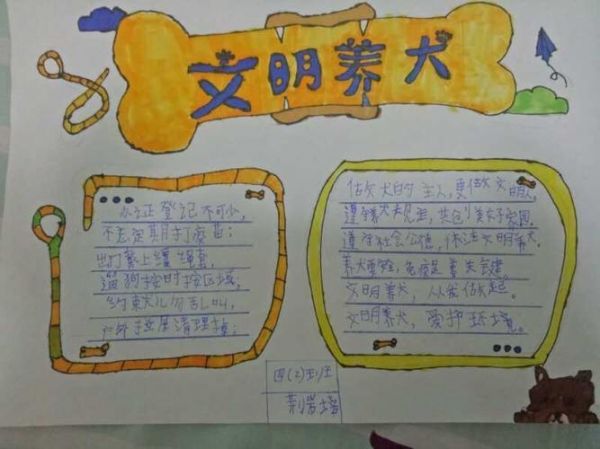 文明养犬
办证登记不可少，
不忘定期打疫苗；
出门系上缰绳套，
遛狗按时按区域，
约束犬儿勿乱叫，
户外拉屎清理掉；
做犬的主人，更做文明人，
遵守犬规，共创美好家园。
遵守社会公德，依法文明养犬。
养犬要免疫
文明养犬，从我做起。
文明养犬，爱护环境。
四(2)班